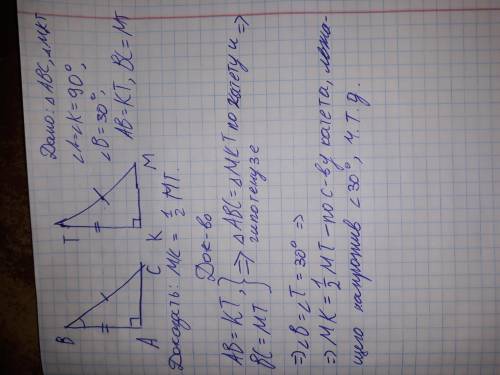 Дано: △ABC, △MKT
∠A=∠K=90°,
∠B=30°,
AB=KT, BC=MT
B
A
C
T
K
M
Доказать: MK = 1/2 MT.
Док-во
AB=KT, } => △ABC=△MKT по катету и =>
BC=MT } гипотенузе
=> ∠B=∠T=30° =>
=> MK=1/2 MT - по св-ву катета, лежа-
щего напротив ∠30°, ч.т.д.